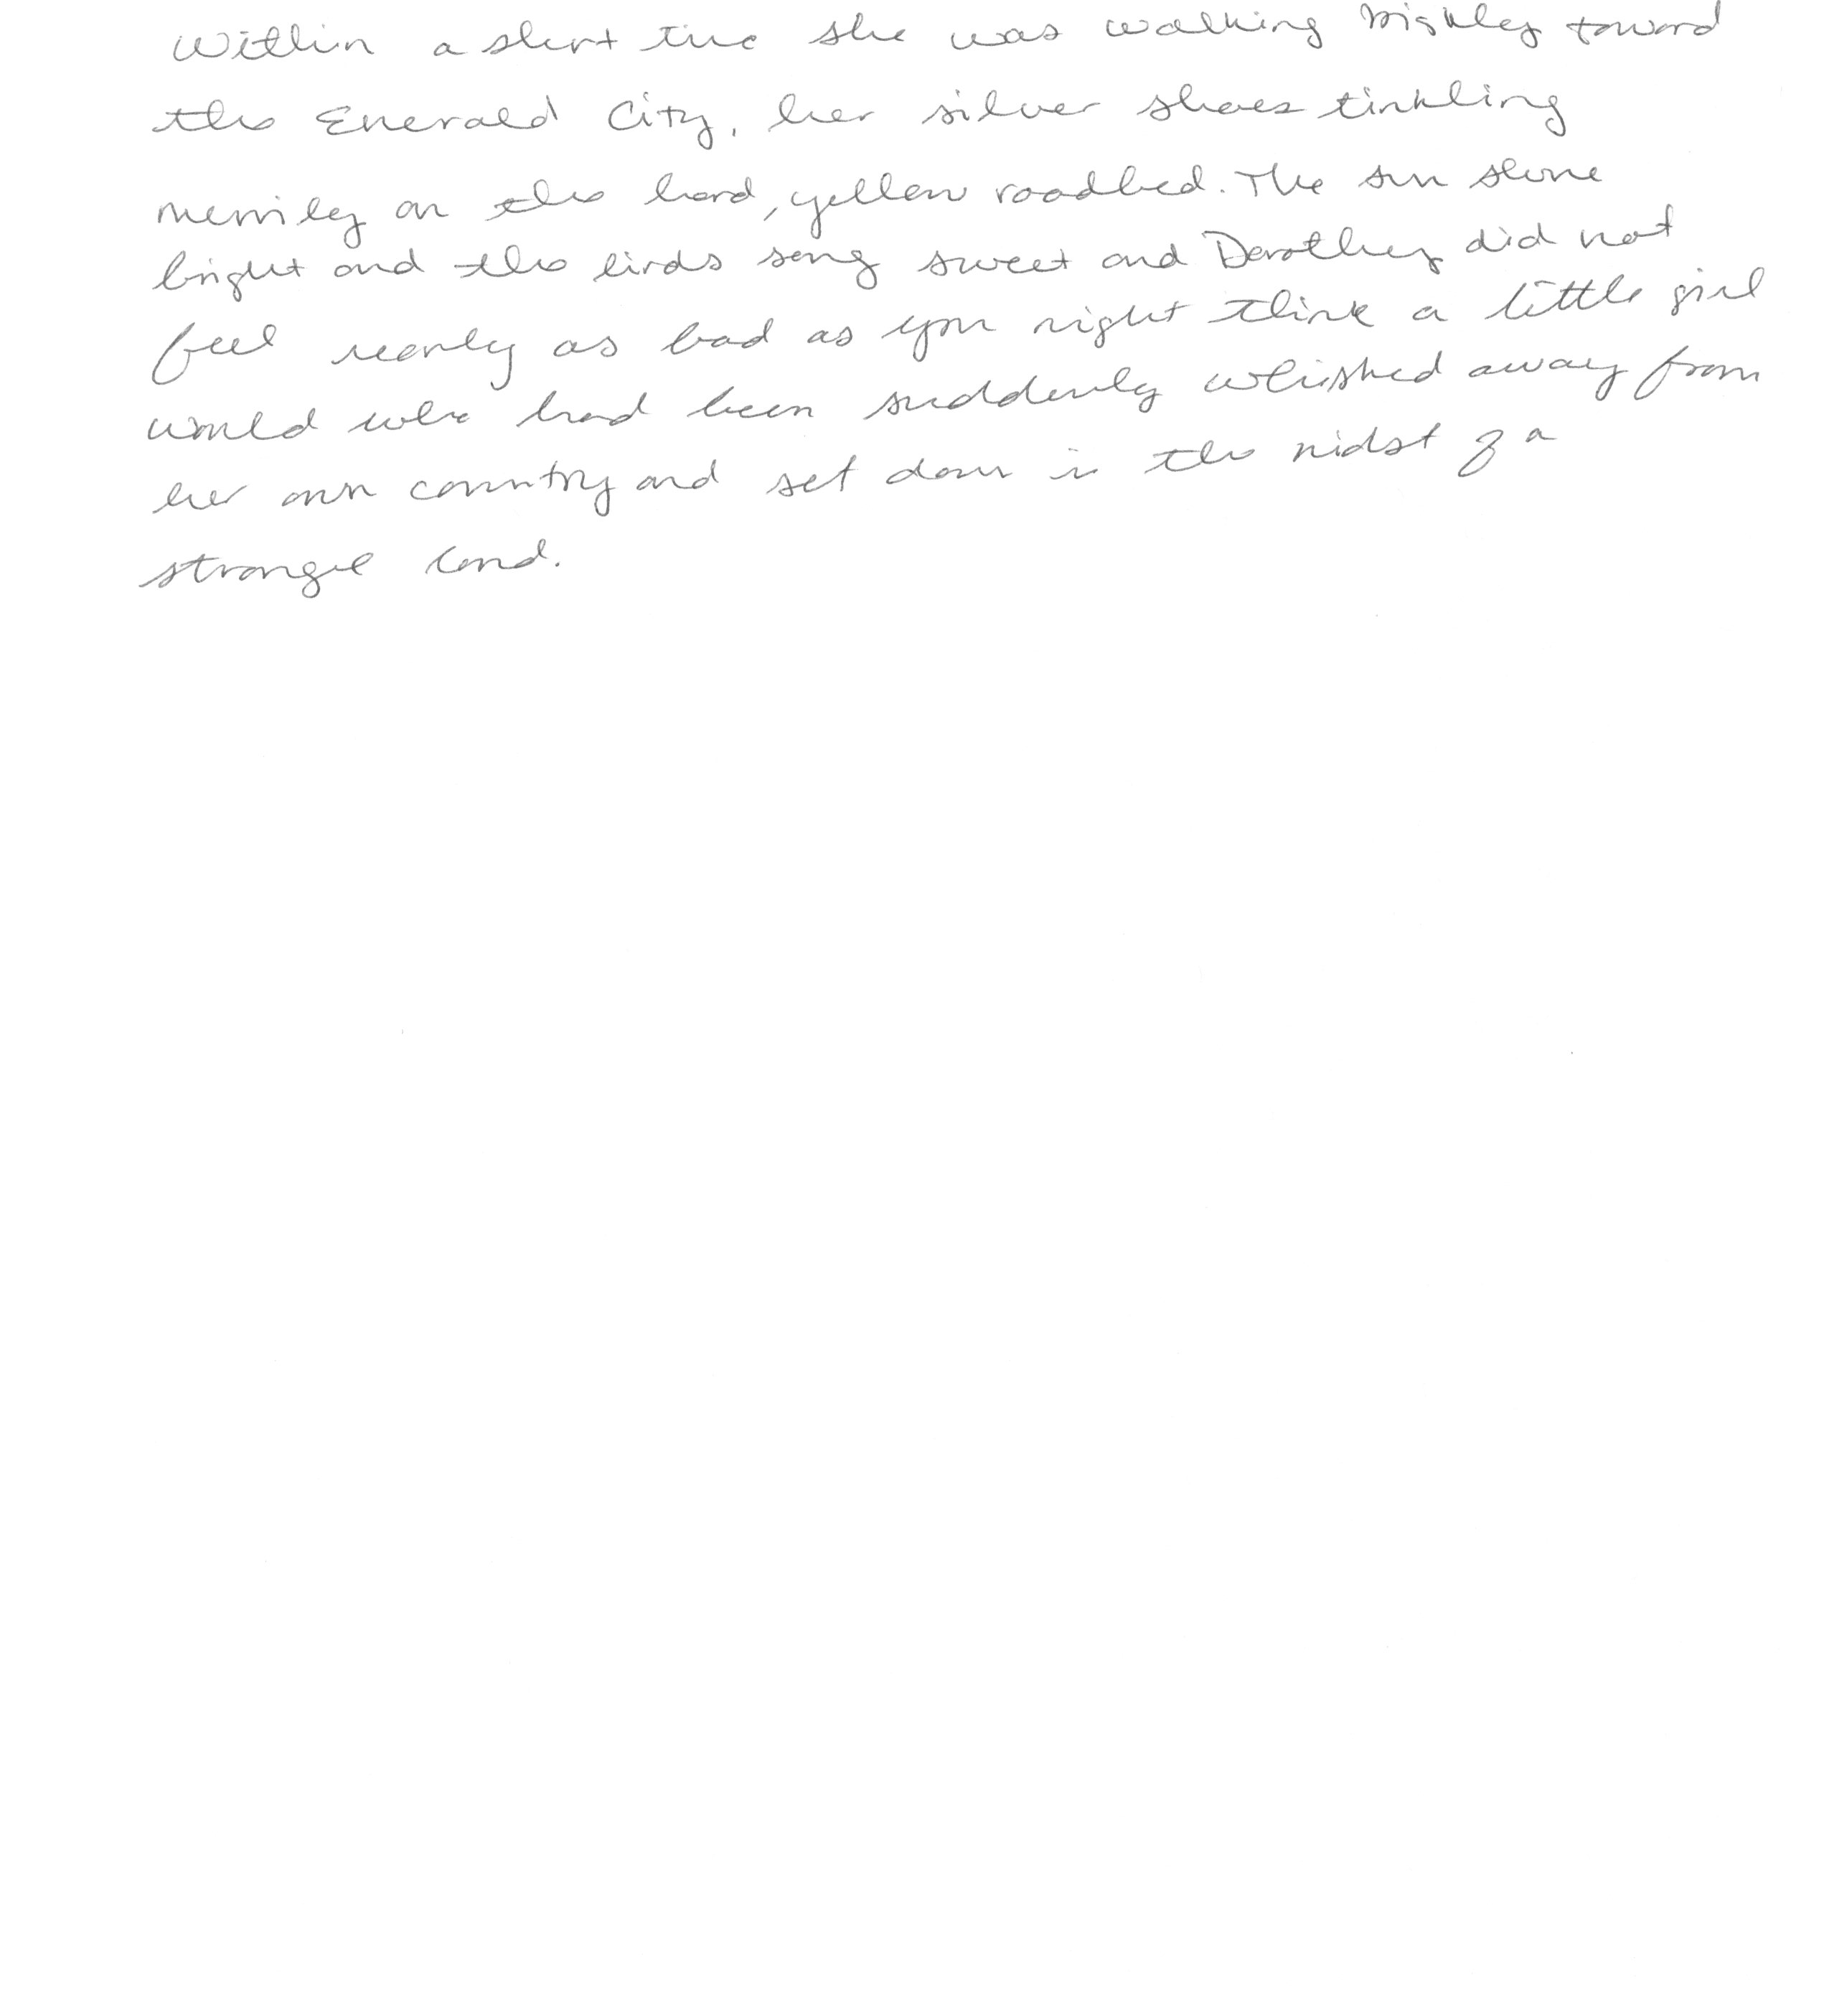 Within a short time she was walking briskly toward
the Emerald City, her silver shoes tinkling
merrily on the hard, yellow roadbed. The sun shone
bright and the birds sang sweet and Dorothy did not
feel nearly as bad as you might think a little girl
would who had been suddenly whisked away from
her own country and set down in the midst of a
strange land.